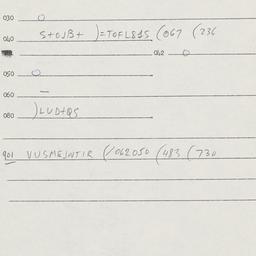 030 O
040 S+OJB+ )=TOFL8 1S (067 (236
042 O
050 O
060 —
080 )LUD+QS
901 VUSMEJNTIR (/062050 (483 (730